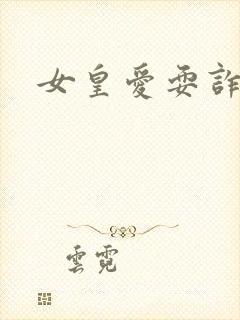 女皇愛耍詐
雲霓